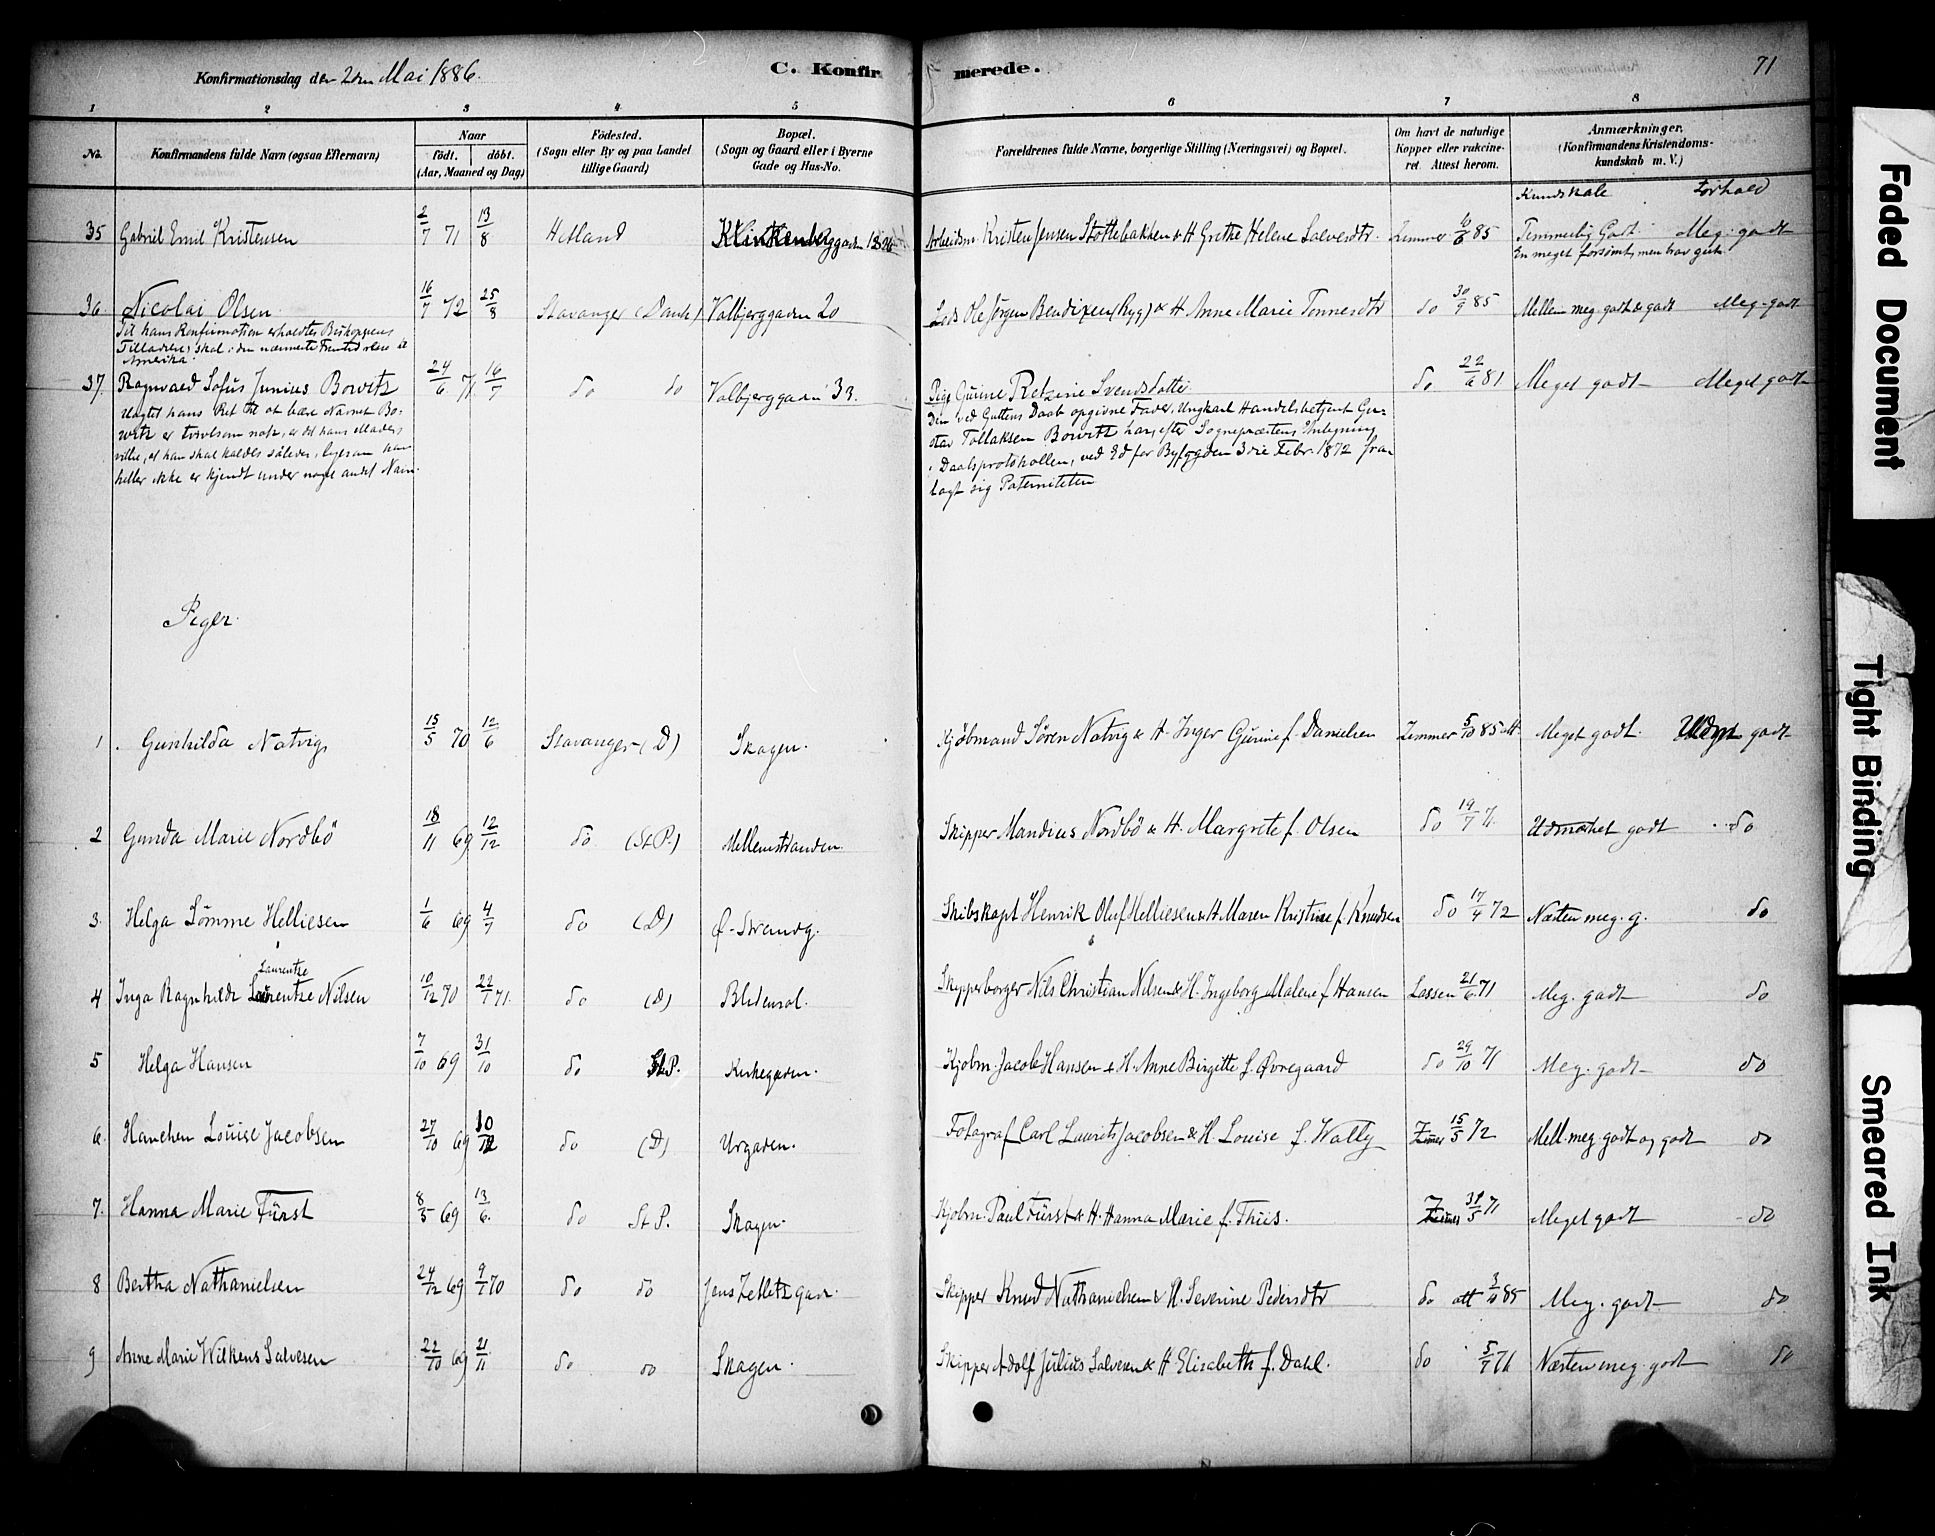 Konfirmationsdag den 2den Mai 1886.
C. Konfirmerede.
71
1 2 3 4 5 6 7 8
No. Konfirmandens fulde Navn (ogsaa Efternavn) Naar født. døbt. (Aar, Maaned og Dag) Födested. (Sogn eller By og paa Landet tillige Gaard) Bopæl. (Sogn og Gaard eller i Byerne Gade og Hus-No. Forældrenes fulde Navne, borgerlige Stilling (Næringsvei) og Bopæl. Om havt de naturlige Kopper eller vakcineret. Attest herom. Anmærkninger. (Konfirmandens Kristendomskundskab m. V.)
Kundskab Forhold
35 Gabriel Emil Kristensen 2/7 71 13/8 Hetland Klinkenberggaden Arbeidsm. Kristen Jensen Stottebakken & H. Grethe Helene Salvesdtr. Zimmer 6/6 85 Temmelig Godt. Meg. godt
En meget forsømt, men brav gut.
36 Nicolai Olsen 16/7 72 25/8 Stavanger (Domk) Valbjerggaden 20 Lods Ole Jørgen Bendixen (Ryg) & H. Anne Marie Tonnesdtr do 30/9 85 Mellem meg. godt & godt Meg. godt
Til hans Konfirmation erholdtes Biskoppens
Tilladelse, skal i den nærmeste Fremtid reise til
Amerika.
37. Ragnvald Sofus Junius Bowitz 24/6 71 16/7 do do Valbjerggaden 33. Pige Gurine Retzine Svendsdotter do 22/6 81 Meget godt Meget godt
Uagtet hans Ret til at bære Navnet Bo-
witz er tvivlsom nok, er det hans Moders
villie, at han skal kaldes således, ligesom han
heller ikke er kjendt under noget andet Navn.
Den ved Guttens Daab opgivne Fader, Ungkarl Handelsbetjent Gu-
stav Tollaksen Bowitz har, efter Sognepræstens Indtegning
i Daabsprotokollen, ved Ed for Byfogden 3die Febr. 1872 fra-
lagt sig Paterniteten
Piger.
1 Gunhilda Natvig 15/5 70 12/6 Stavanger (D) Skagen. Kjøbmand Sören Natvig & H. Inger Gurine f. Danielsen Zimmer 5/10 85 att. Meget godt. Udm godt
2 Gunda Marie Nordbö 18/11 69 12/12 do (St P.) Mellemstranden. Skipper Mandius Nordbö & H. Margrete f. Olsen do 19/7 71 Udmærket godt do
3. Helga Lömme Helliesen 1/6 69 4/7 do (D) Ø-Strandg. Skibskapt Henrik Oluf Helliesen & H. Maren Kristine f. Knudsen do 17/4 72 Næsten meg. g. do
Laurentze
4 Inga Ragnhilde Laurentze Nilsen 10/12 70 22/1 71. do (D) Bledensol. Skipperborger Nils Christian Nilsen & H. Ingeborg Malene f. Hansen Lassen 21/6 71 Meg. godt do
5 Helga Hansen 7/10 69 31/10 do St P. Kirkegaden. Kjobm. Jacob Hansen & H. Anne Birgitte f. Øvregaard do 29/10 71 Meg. godt do
6. Hanchen Louise Jacobsen 27/10 69 10/12 do (D) Urgaden. Fotograf Carl Laurits Jacobsen & H. Louise f. Wally Zimer 15/5 72 Mell. meg. godt og godt do
7. Hanna Marie Fürst 8/5 69 13/6. do St P. Skagen. Kjobm. Paul Fürst & H. Hanna Marie f. Thiis. Zimer 31/5 71 Meget godt do
8 Bertha Nathanielsen 24/12 69 9/1 70 do do Jens Zetlitz gad. Skipper Knud Nathanielsen & H. Severine Pedersdtr do att 3/10 85 Meg. godt do
9 Anne Marie Wilkens Salvesen 22/10 69 21/11 do do Skagen. Skipper Adolf Julius Salvesen & H. Elisabeth f. Dahl. do 5/7 71 Næsten meg. godt do
Faded Document
Tight Binding
Smeared Ink